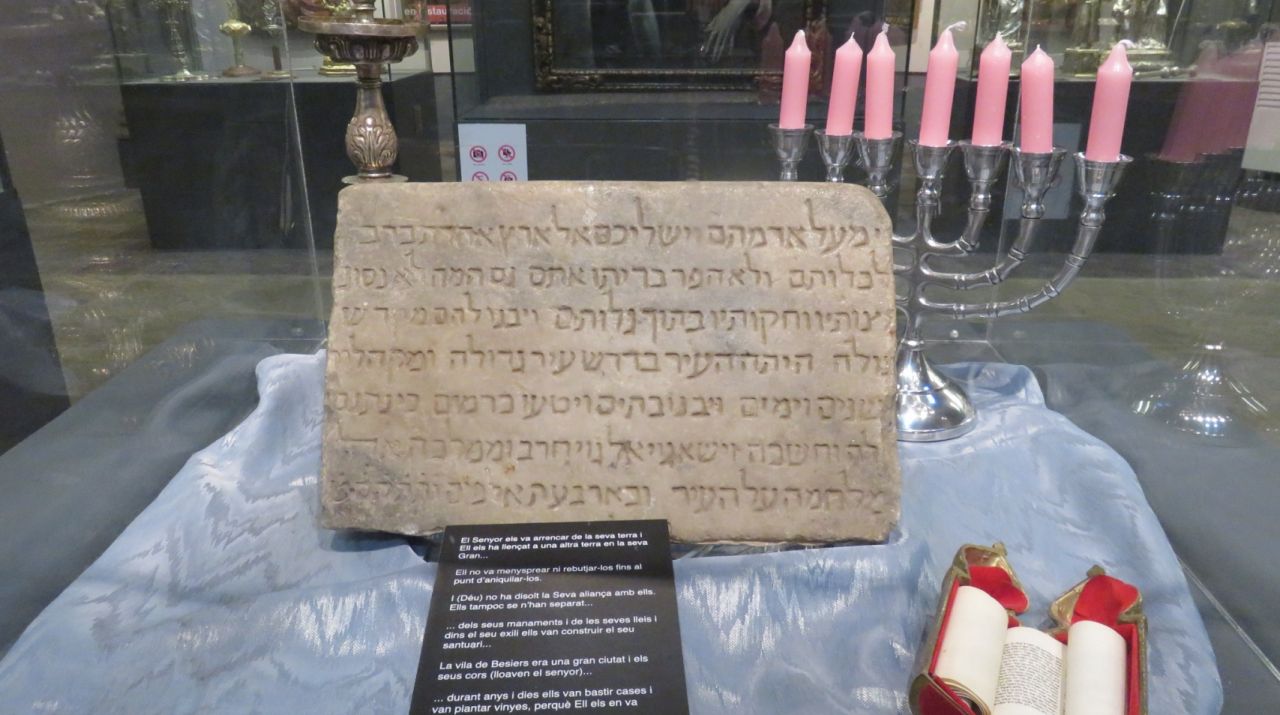 en restauració
מעל אדמתם וישליכם אל ארץ אחרת ברב
לכלותם ולא הפר בריתו אתם גם המה לא נסוג
צותיו וחקותיו בתוך גלותם ויבנו להם מקדש
ולה היתה העיר בדרש עיר גדולה
שנים וימים ויבנו בתים ויטעו כרמים כי נתנם
רה וחשכה וישא גוי אל גוי חרב
מלחמה על העיר ובארבעת
El Senyor els va arrencar de la seva terra i
Ell els ha llençat a una altra terra en la seva
Gran...
Ell no va menysprear ni rebutjar-los fins al
punt d'aniquilar-los.
I (Déu) no ha disolt la Seva aliança amb ells.
Ells tampoc se n'han separat...
... dels seus manaments i de les seves lleis i
dins el seu exili ells van construir el seu
santuari...
La vila de Besiers era una gran ciutat i els
seus cors (lloaven el senyor)...
... durant anys i dies ells van bastir cases i
van plantar vinyes, perquè Ell els en va